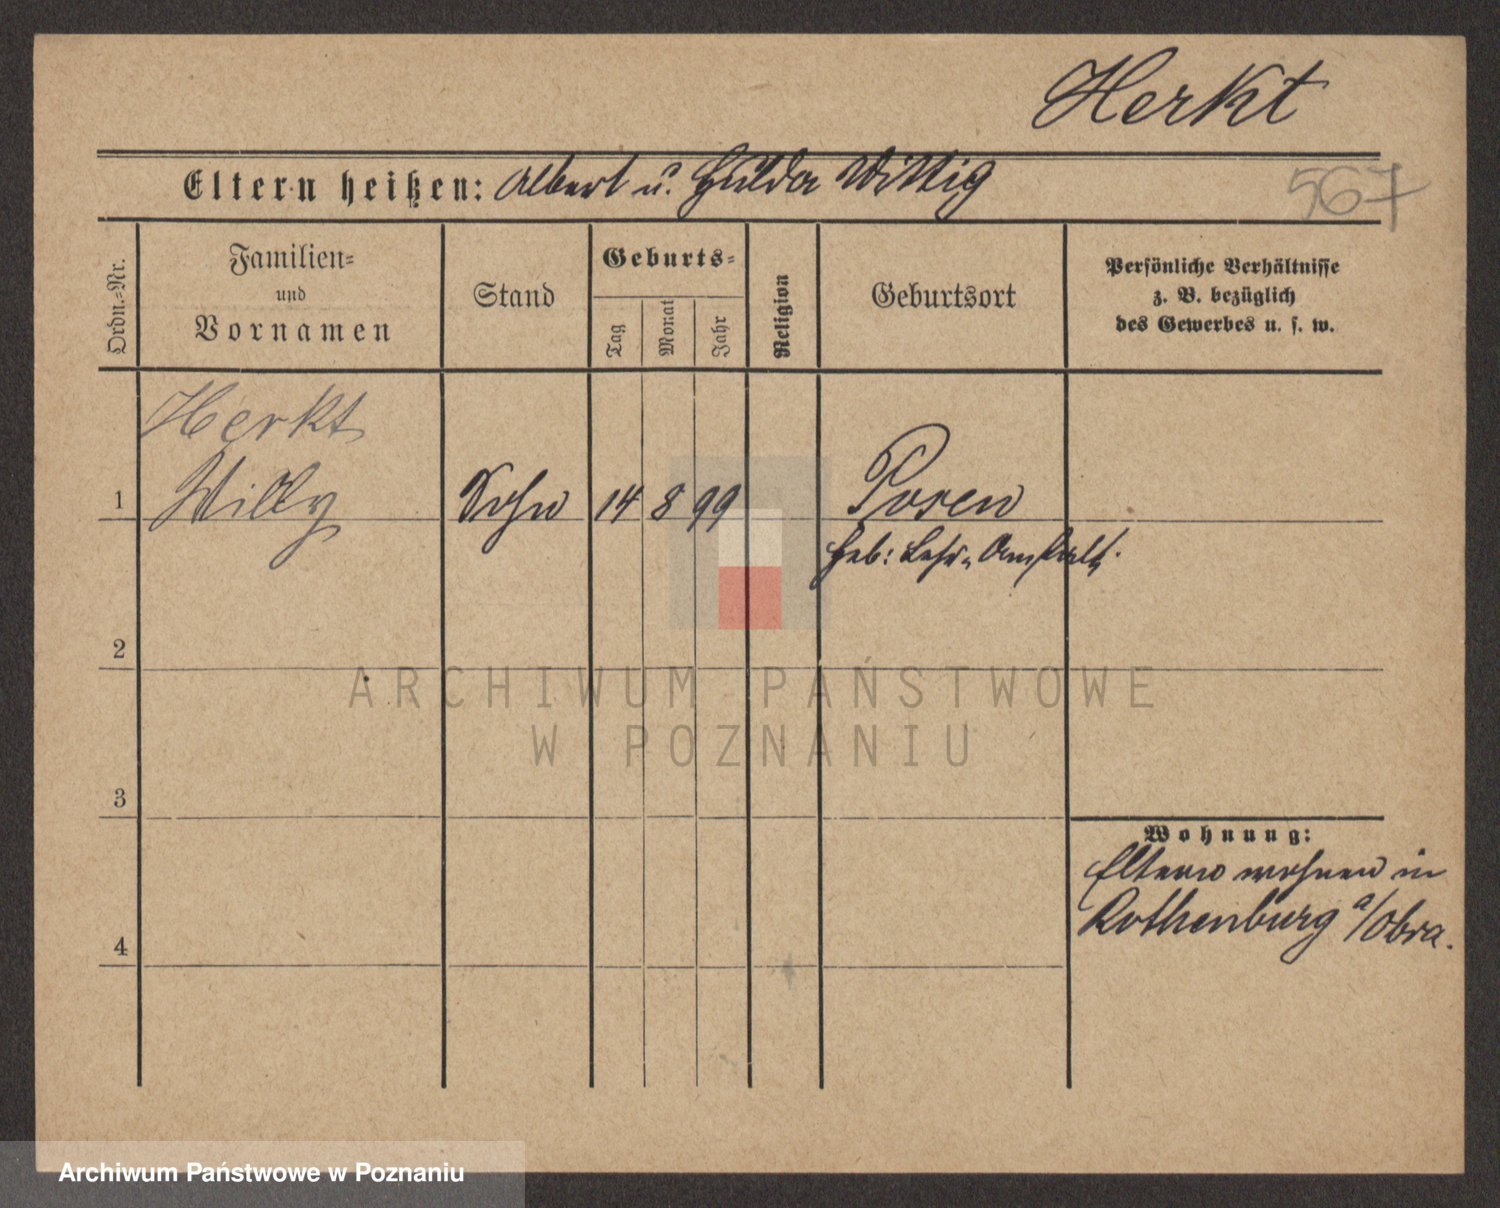 Herkt
567
Eltern heißen: Albert u. Hulda Wittig
Ordn.=Nr.
Familien=
und
Vornamen
Stand
Geburts=
Tag
Monat
Jahr
Religion
Geburtsort
Persönliche Verhältnisse
z. B. bezüglich
des Gewerbes u. s. w.
Herkt
1 Willy Sohn 14 8 99 Posen
Heb: Lehr-Anstalt.
2
3
4
Wohnung:
Eltern wohnen in
Rothenburg a/Obra.
ARCHIWUM PAŃSTWOWE
W POZNANIU
Archiwum Państwowe w Poznaniu